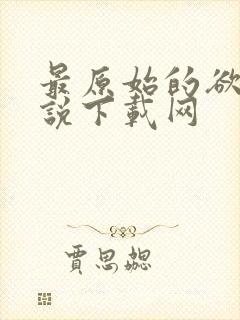 最原始的欲
說下載网
賈思勰